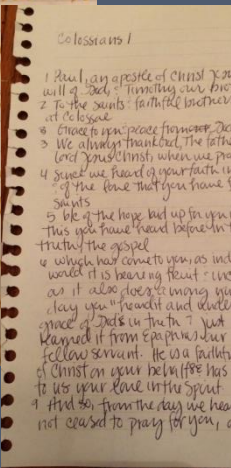 Colossians 1
1 Paul, an apostle of Christ Jesus
will of God, & Timothy our bro
2 To the saints & faithful brothers
at Colossae
Grace to you & peace from our
3 We always thank God, the Father
Lord Jesus Christ, when we pra
4 Since we heard of your faith in
of the love that you have f
saints
5 b/c of the hope laid up for you
this you have heard before in t
truth, the gospel
6 which has come to you, as ind
world it is bearing fruit
as it also does among
day you heard it and unders
grace of God in truth 7 just
learned it from Epaphras our
fellow servant. He is a faithfu
of Christ on your behalf 8 & has
to us your love in the Spirit
9 And so, from the day we hea
not ceased to pray for you, a